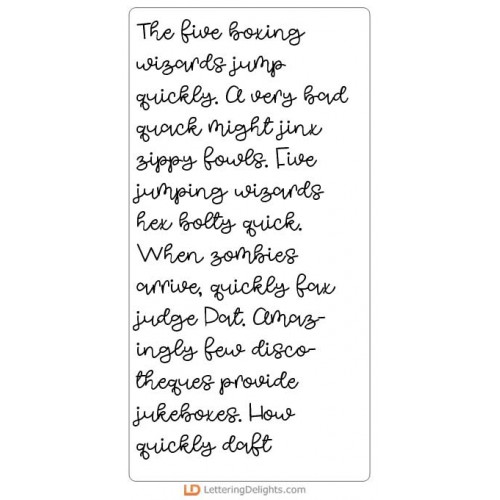 The five boxing
wizards jump
quickly. A very bad
quack might jinx
zippy fowls. Five
jumping wizards
hex bolty quick.
When zombies
arrive, quickly fax
judge Dat. Amaz-
ingly few disco-
theques provide
jukeboxes. How
quickly daft
LD LetteringDelights.com